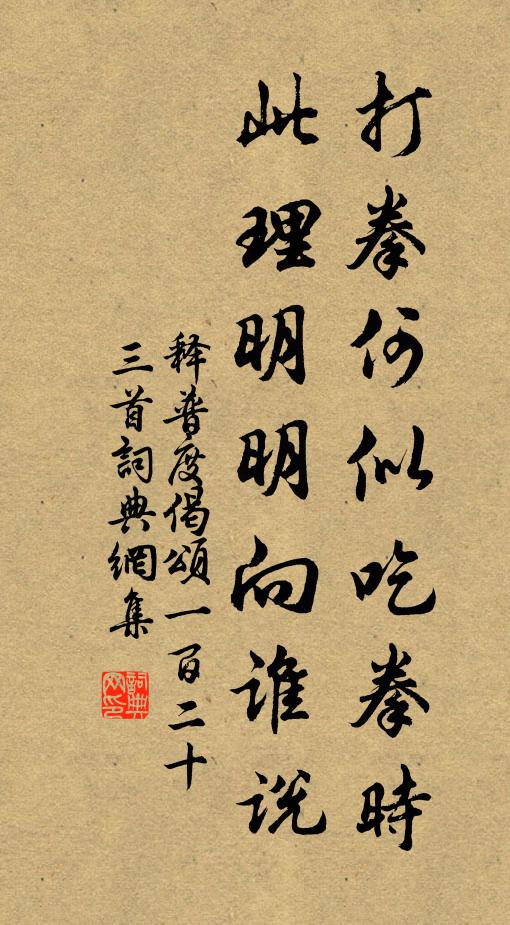 打拳何似吃拳時
此理明明向誰説
释普度偈頌一百二十
三首詞典網集
詞典
网印